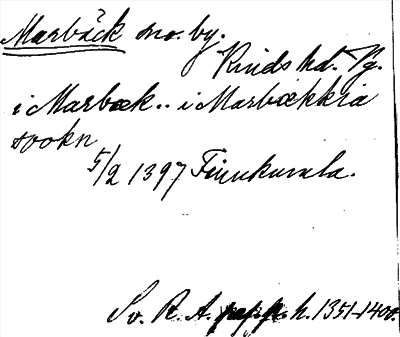 Marbäck sno. by.
Kinds hd. Vg.
i Marbæk.. i Marbækkria
sookn
5/2 1397 Finnkumla.
Sv. R. A. papp. h. 1351-1400.